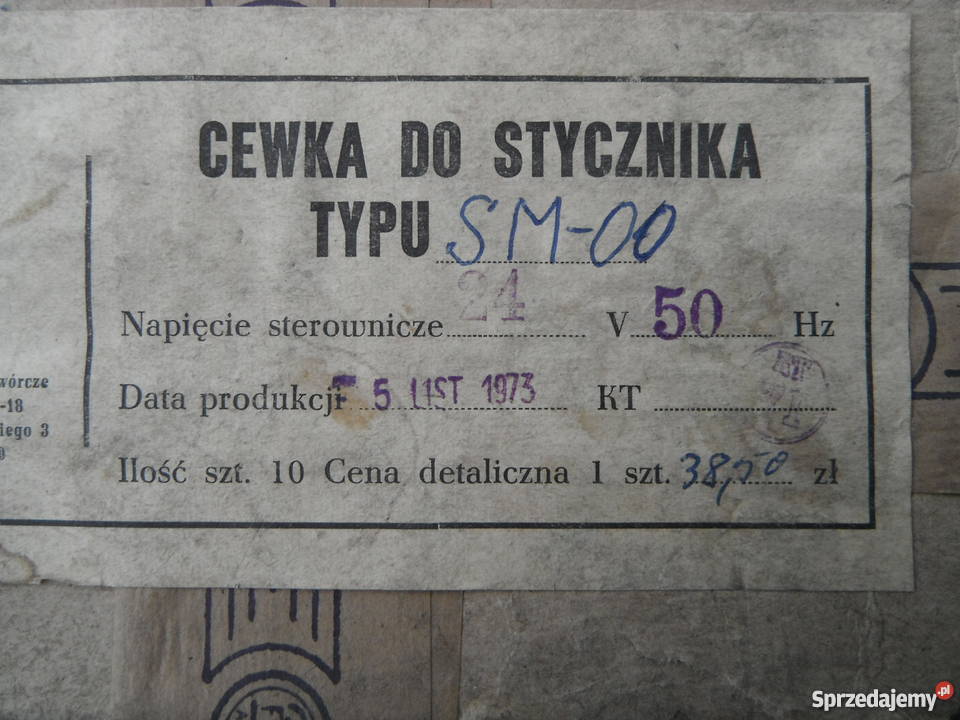 CEWKA DO STYCZNIKA
TYPU SM-00
Napięcie sterownicze 24 V 50 Hz
Data produkcji 5 LIST 1973 KT
Ilość szt. 10 Cena detaliczna 1 szt. 38,50 zł
wórcze
-18
iego 3
Sprzedajemy.pl